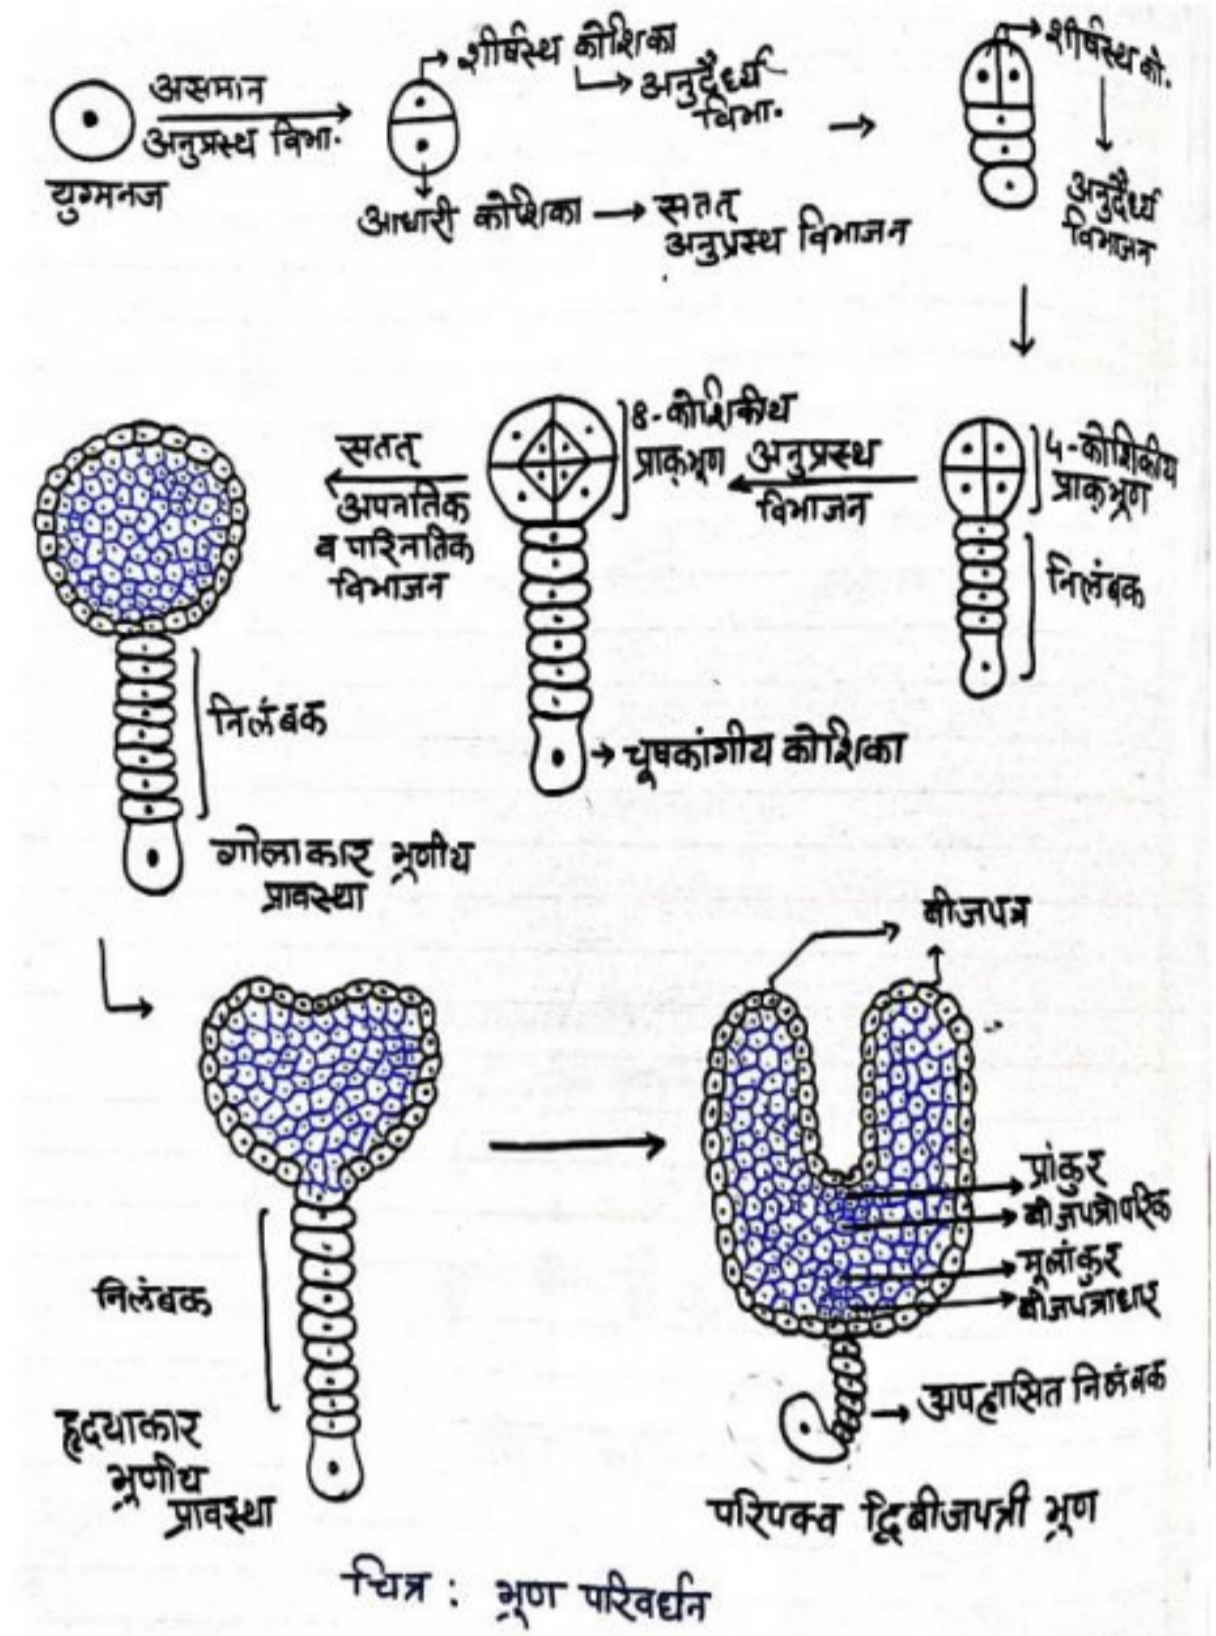 असमान
अनुप्रस्थ विभा.
युग्मनज
शीर्षस्थ कोशिका
अनुदैर्ध्य
विभा.
आधारी कोशिका
सतत्
अनुप्रस्थ विभाजन
शीर्षस्थ को.
अनुदैर्ध्य
विभाजन
4-कोशिकीय
प्राक्भ्रूण
निलंबक
अनुप्रस्थ
विभाजन
8-कोशिकीय
प्राक्भ्रूण
चूषकांगीय कोशिका
सतत्
अपनतिक
व परिनतिक
विभाजन
निलंबक
गोलाकार भ्रूणीय
प्रावस्था
निलंबक
हृदयाकार
भ्रूणीय
प्रावस्था
बीजपत्र
प्रांकुर
बीजपत्रोपरिक
मूलांकुर
बीजपत्राधार
अपह्रासित निलंबक
परिपक्व द्विबीजपत्री भ्रूण
चित्र : भ्रूण परिवर्धन